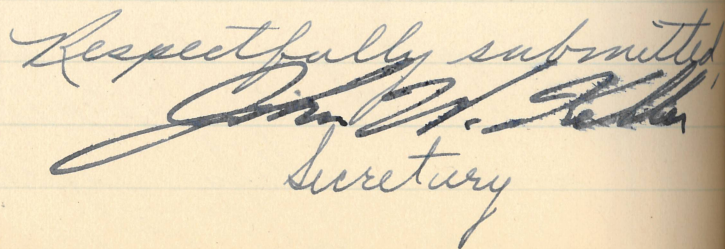 Respectfully submitted,
John W.
Secretary